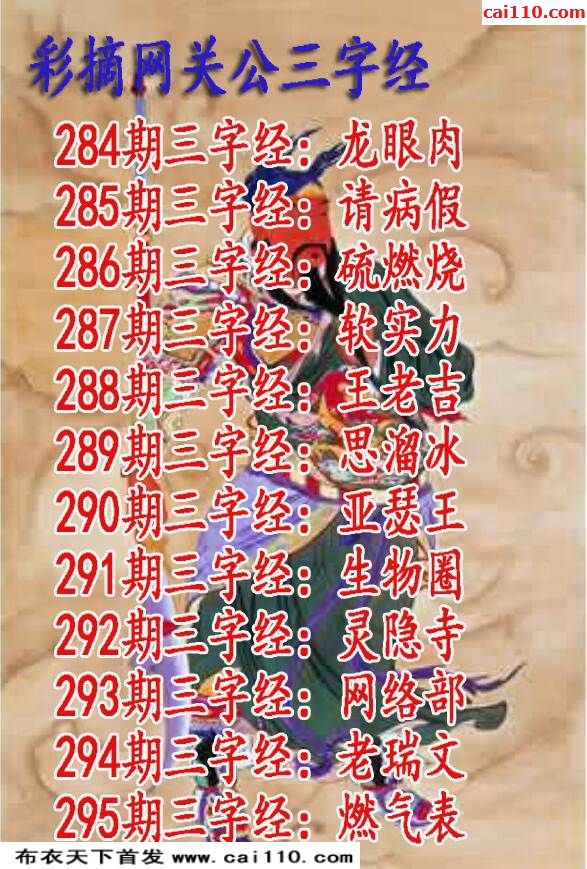 cai110.com
彩摘网关公三字经
284期三字经：龙眼肉
285期三字经：请病假
286期三字经：硫燃烧
287期三字经：软实力
288期三字经：王老吉
289期三字经：思溜冰
290期三字经：亚瑟王
291期三字经：生物圈
292期三字经：灵隐寺
293期三字经：网络部
294期三字经：老瑞文
295期三字经：燃气表
布衣天下首发 www.cai110.com